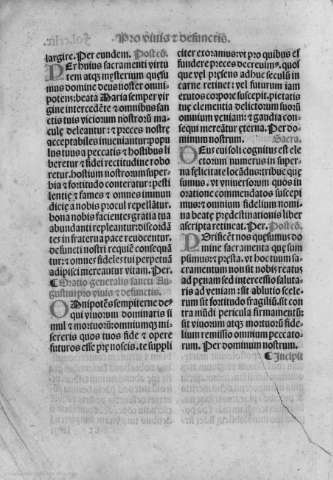 Pro viuis ⁊ defunctis.
largire. Per eundem. Postcō.
PEr huius sacramenti virtu
tem atqꝫ mysterium quesu
mus domine deus noster omni
potens: beata Maria semper vir
gine intercedēte ⁊ omnibus san
ctis tuis viciorum nostrorū ma
cule deleantur: ⁊ preces nostre
acceptabiles inueniantur: popu
lus tuus a peccatis ⁊ hostibus li
beretur ⁊ fidei rectitudine robo
retur, hostium nostrorum super
bia ⁊ fortitudo conteratur: pesti
lentie ⁊ fames ⁊ omnes immun
dicie a tuo nobis populo repellātur.
bona nobis facientes gratia tua
abundanti repleantur: discordā
tes in fraterna pace reuocentur.
defuncti nostri requiē consequā
tur: ⁊ omnes fideles tui perpetuā
adipisci mereantur vitam. Per.
¶ Oratio generalis sancti Au
gustini pro viuis ⁊ defunctis.
OMnipotēs sempiterne de⁹
qui viuorum dominaris si
mul ⁊ mortuorū: omniumqꝫ mi
sereris quos tuos fide ⁊ opere
futuros esse p̄noscis. te suppli
citer exoramus: vt pro quibus ef
fundere preces decreuim⁹. quos
qꝫ vel pn̄sens adhuc seculū in
carne retinet: vel futurum iam
exutos corpore suscepit. pietatis
tue clementia delictorum suorū
omnium veniam: ⁊ gaudia con
sequi mereātur eterna. Per do
minum nostrum. Secra.
DEus cui soli cognitus est ele
ctorum numerus in super
na felicitate locādus: tribue que
sumus. vt vniuersorum quos in
oratione commendatos suscepi
mus: ⁊ omnium fidelium nomi
na beate p̄destinationis liber
ascripta retineat. Per. Postcō.
PUrificēt nos quesumus do
mine sacramenta que sum
psimus: ⁊ presta. vt hoc tuum sa
cramentum non sit nobis reatus
ad penam sed intercessio saluta
ris ad veniam: sit ablutio scele
rum sit fortitudo fragiliū. sit con
tra mūdi pericula firmamentū:
sit viuorum atqꝫ mortuorū fide
lium remissio omnium peccato
rum. Per dominum nostrum.
¶ Incipit